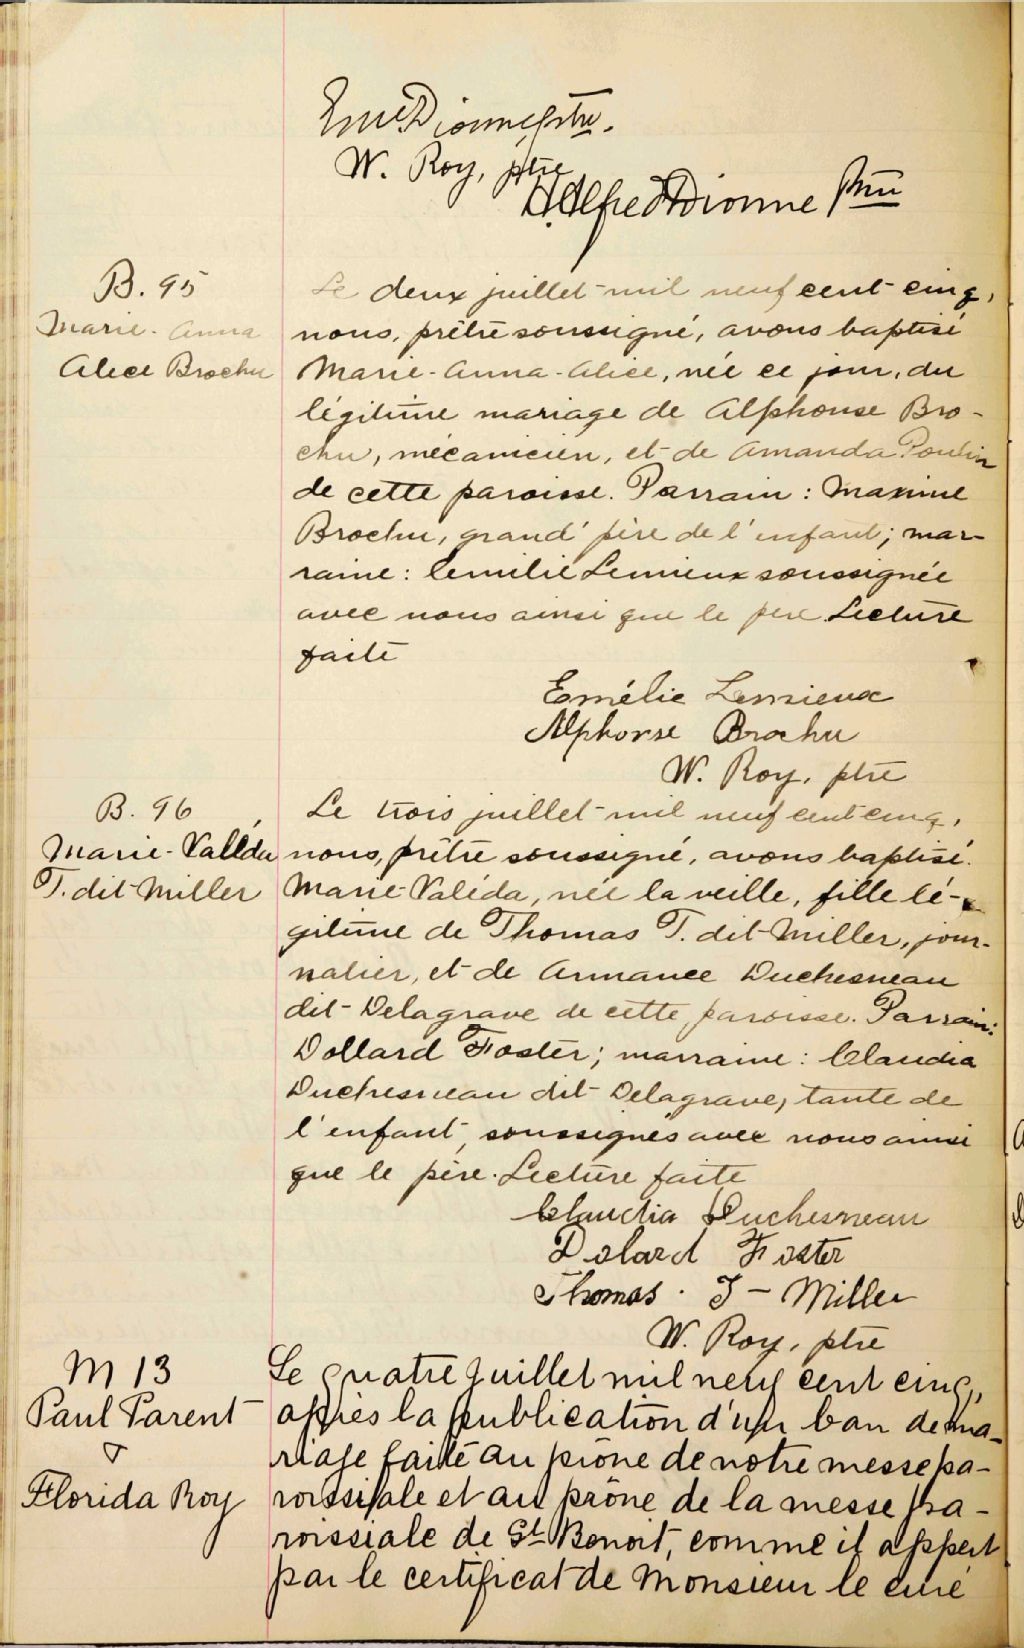 Eme Dionne, ptre.
W. Roy, ptre
H. Alfred Dionne Ptre
B. 95
Marie-Anna
Alice Brochu
Le deux juillet mil neuf cent cinq,
nous, prêtre soussigné, avons baptisé
Marie-Anna-Alice, née ce jour, du
légitime mariage de Alphonse Bro-
chu, mécanicien, et de Amanda Poulin
de cette paroisse. Parrain : Maxime
Brochu, grand'père de l'enfant; mar-
raine : Emilie Lemieux soussignée
avec nous ainsi que le père. Lecture
faite
Emélie Lemieux
Alphonse Brochu
W. Roy, ptre
B. 96
Marie-Valéda
T. dit Miller
Le trois juillet mil neuf cent cinq,
nous, prêtre soussigné, avons baptisé
Marie-Valéda, née la veille, fille lé-
gitime de Thomas T. dit Miller, jour-
nalier, et de Armance Duchesneau
dit Delagrave de cette paroisse. Parrain:
Dollard Foster; marraine : Claudia
Duchesneau dit Delagrave, tante de
l'enfant, soussignés avec nous ainsi
que le père. Lecture faite
Claudia Duchesneau
Dolard Foster
Thomas. T - Miller
W. Roy, ptre
M 13
Paul Parent
&
Florida Roy
Le quatre juillet mil neuf cent cinq,
après la publication d'un ban de ma-
riage faite au prône de notre messe pa-
roissiale et au prône de la messe pa-
roissiale de St Benoit, comme il appert
par le certificat de Monsieur le curé